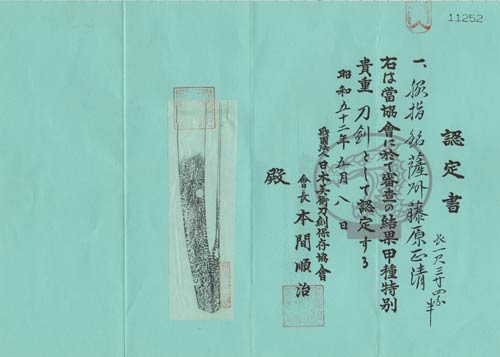 11252
認定書
一、脇指 銘 薩州藤原正清
長一尺三寸四分半
右は當協會に於て審査の結果甲種特別
貴重刀剣として認定する
昭和五十二年五月八日
財團法人日本美術刀剣保存協會
會長 本間順治
殿